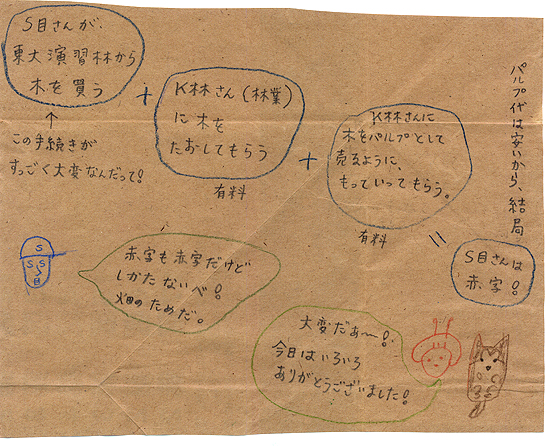 S目さんが、
東大演習林から
木を買う
↑
この手続きが
すっごく大変なんだって!
+
K林さん(林業)
に木を
たおしてもらう
有料
+
K林さんに
木をパルプとして
売るように、
もっていってもらう。
有料
パルプ代は安いから、結局
=
S目さんは
赤字!
S
S S
目
赤字も赤字だけど
しかたないべ!
畑のためだ。
大変だぁ〜!
今日はいろいろ
ありがとうございました!